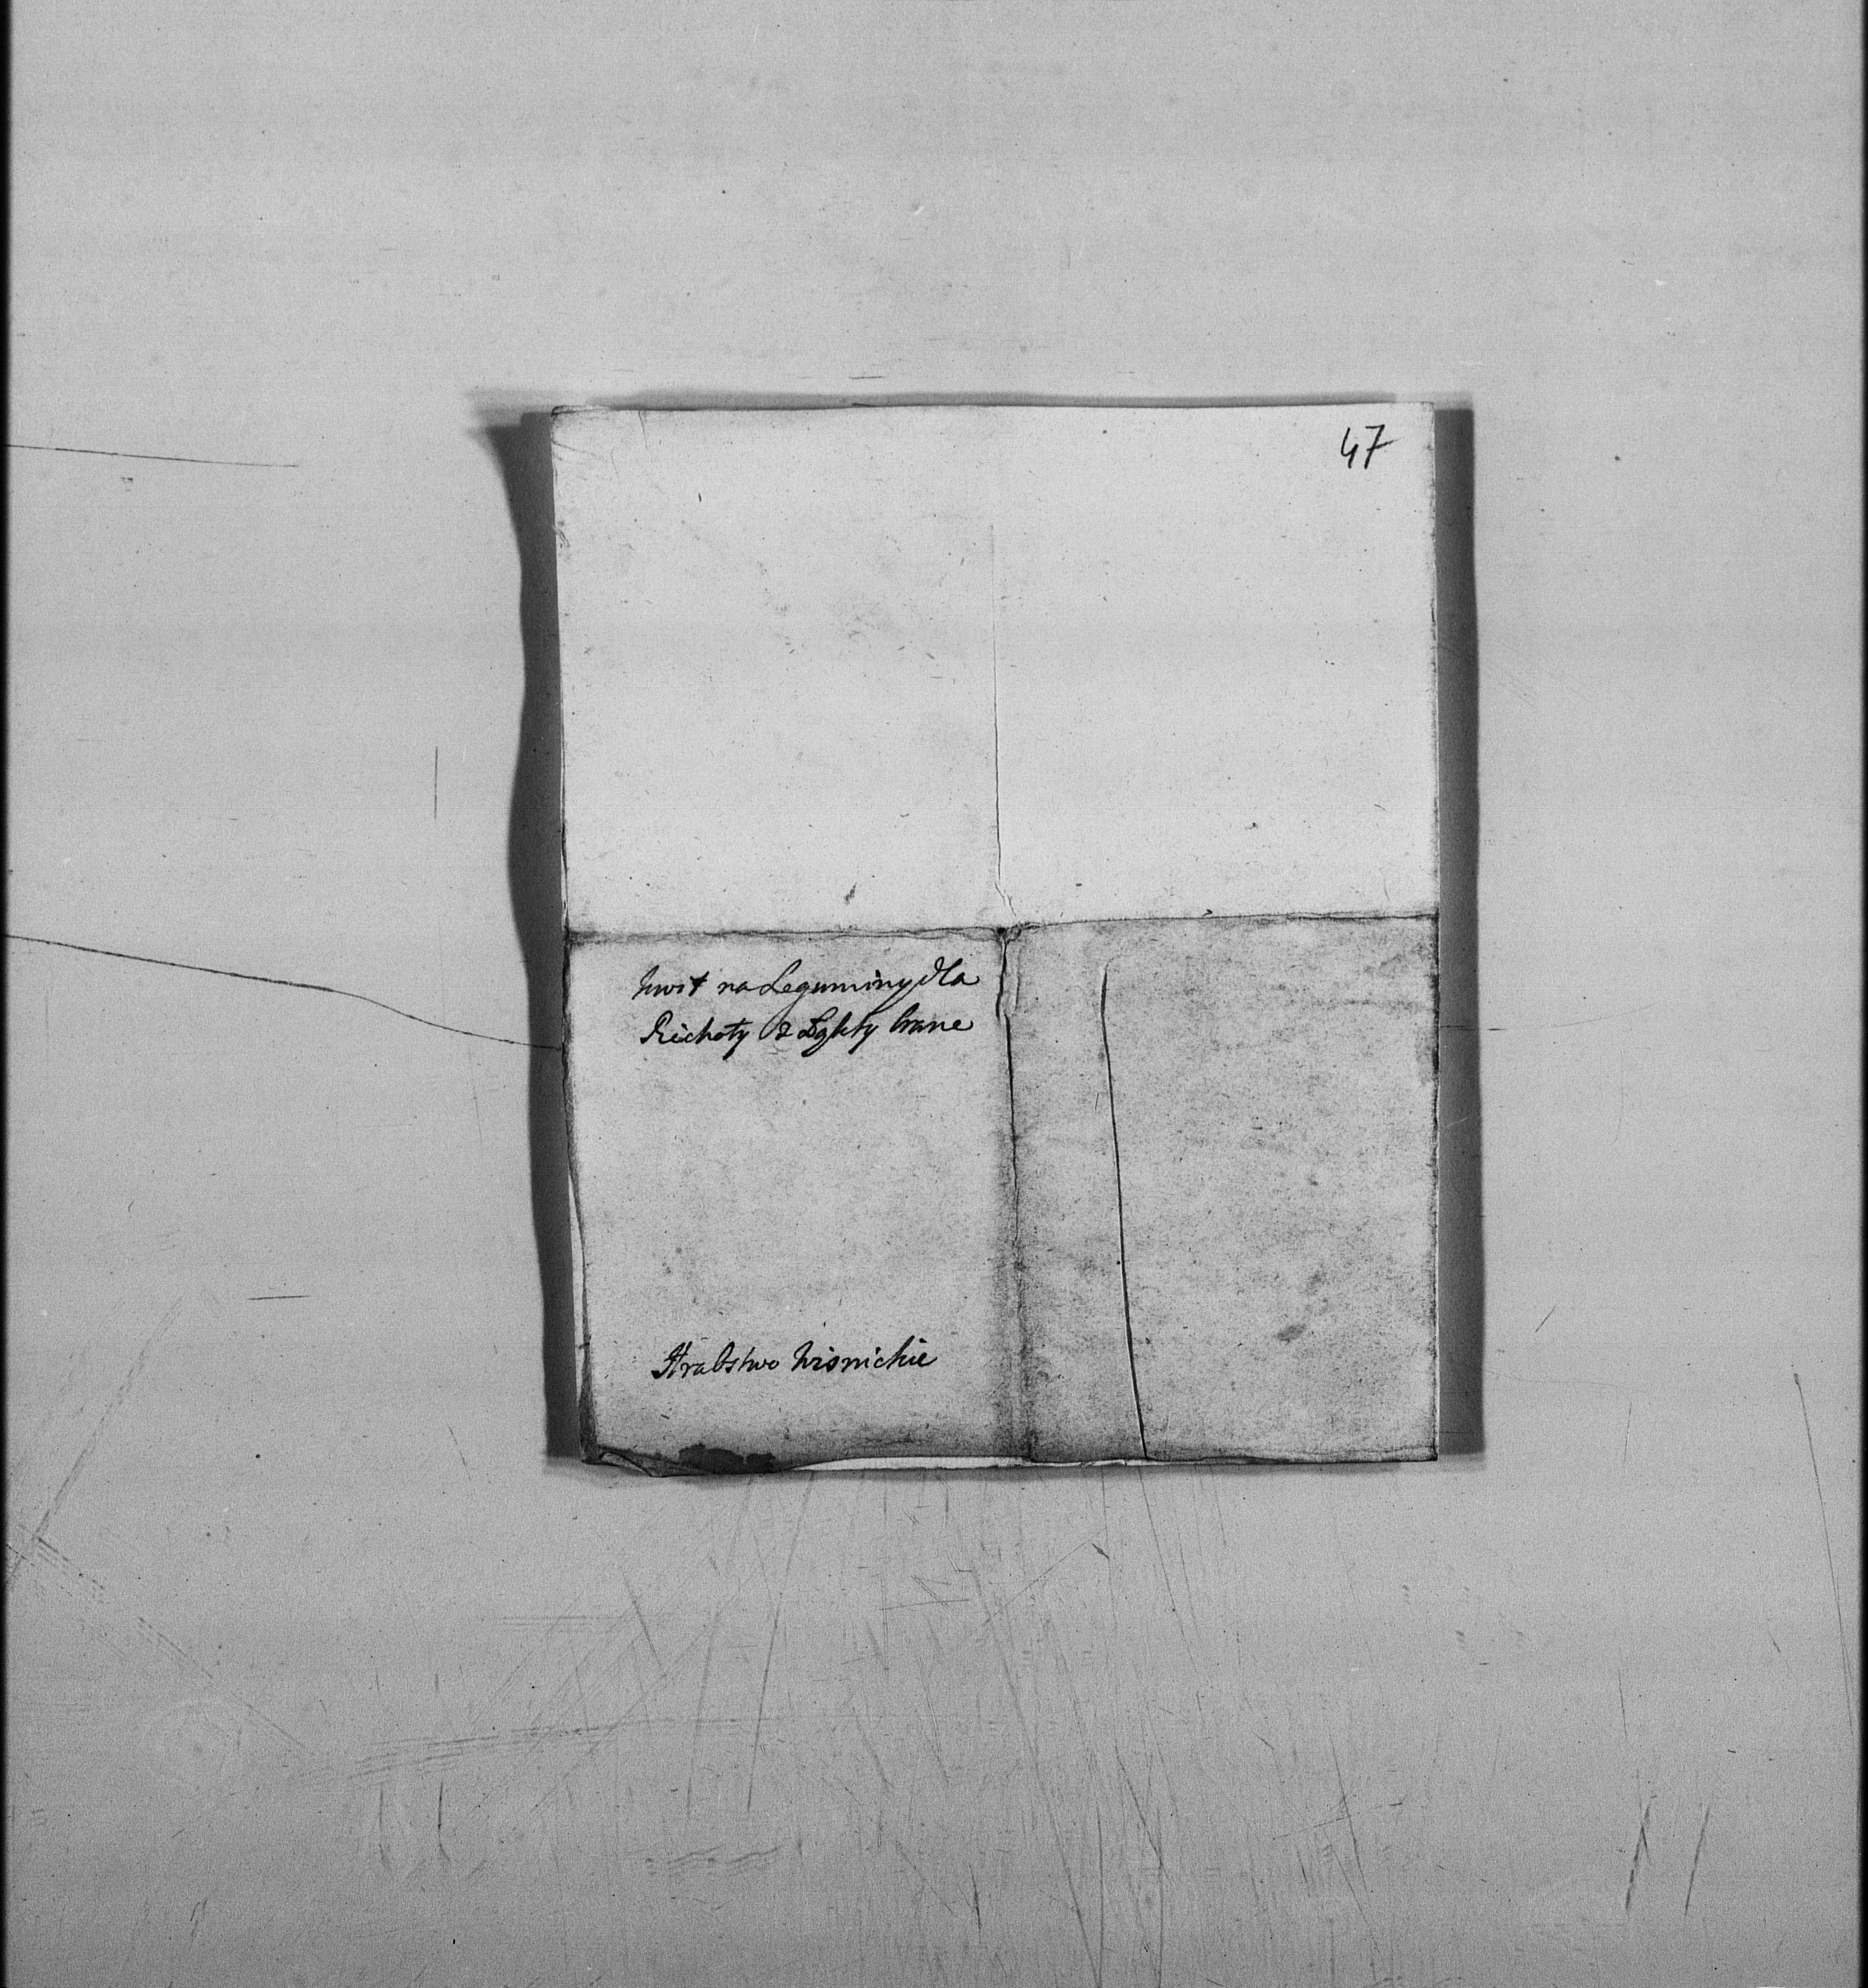 47
Kwit na Leguminy dla
Piechoty z Łąkty brane
Hrabstwo Wisnickie